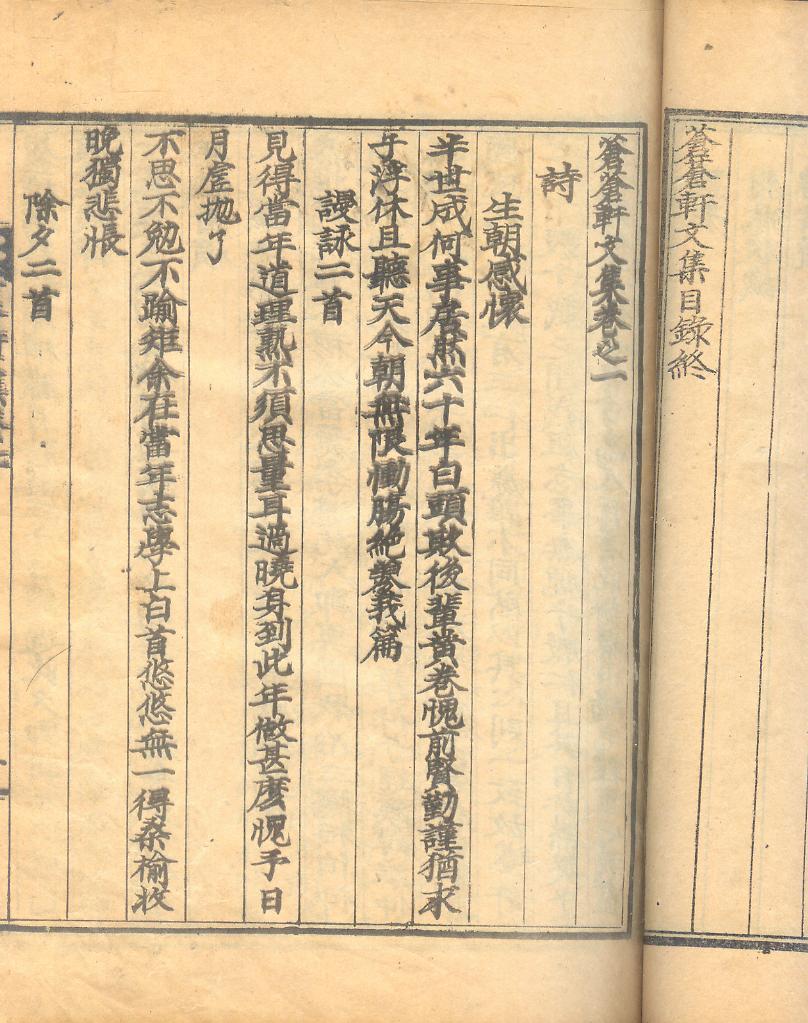 蒼蒼軒文集目錄終
蒼蒼軒文集卷之一
詩
生朝感懷
半世成何事居然六十年白頭欺後輩黃卷愧前賢勤謹猶求
子浮休且聽天今朝無限慟腸絶蓼莪篇
謾詠二首
見得當年道理熟不須思量耳邊曉身到此年做甚麽愧予日
月虛抛了
不思不勉不踰矩余在當年志學上白首悠悠無一得桑榆收
晚獨悲悵
除夕二首